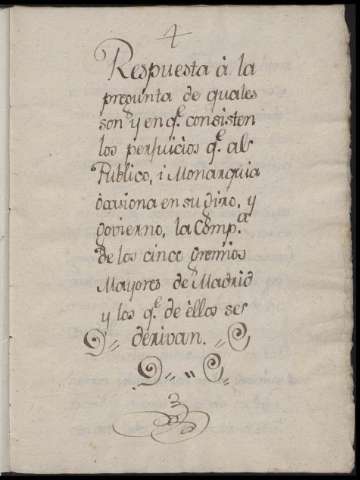 4
Respuesta à la
pregunta de quales
son y en q.^e consisten
los perjuicios q.^e al
Publico, i Monarquia
ocasiona en su giro, y
govierno, la Comp.^a
de los cinco gremios
Mayores de Madrid
y los q.^e de èllos se
derivan.